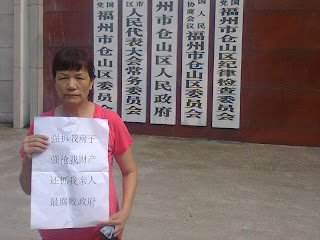 福州市仓山区委员会
人民代表大会常务委员会
福州市仓山区人民政府
协商会议
国人民
福州市仓山区委员会
福州市仓山区纪律检查委员会
强拆我房子
强抢我财产
还抓我亲人
最腐败政府